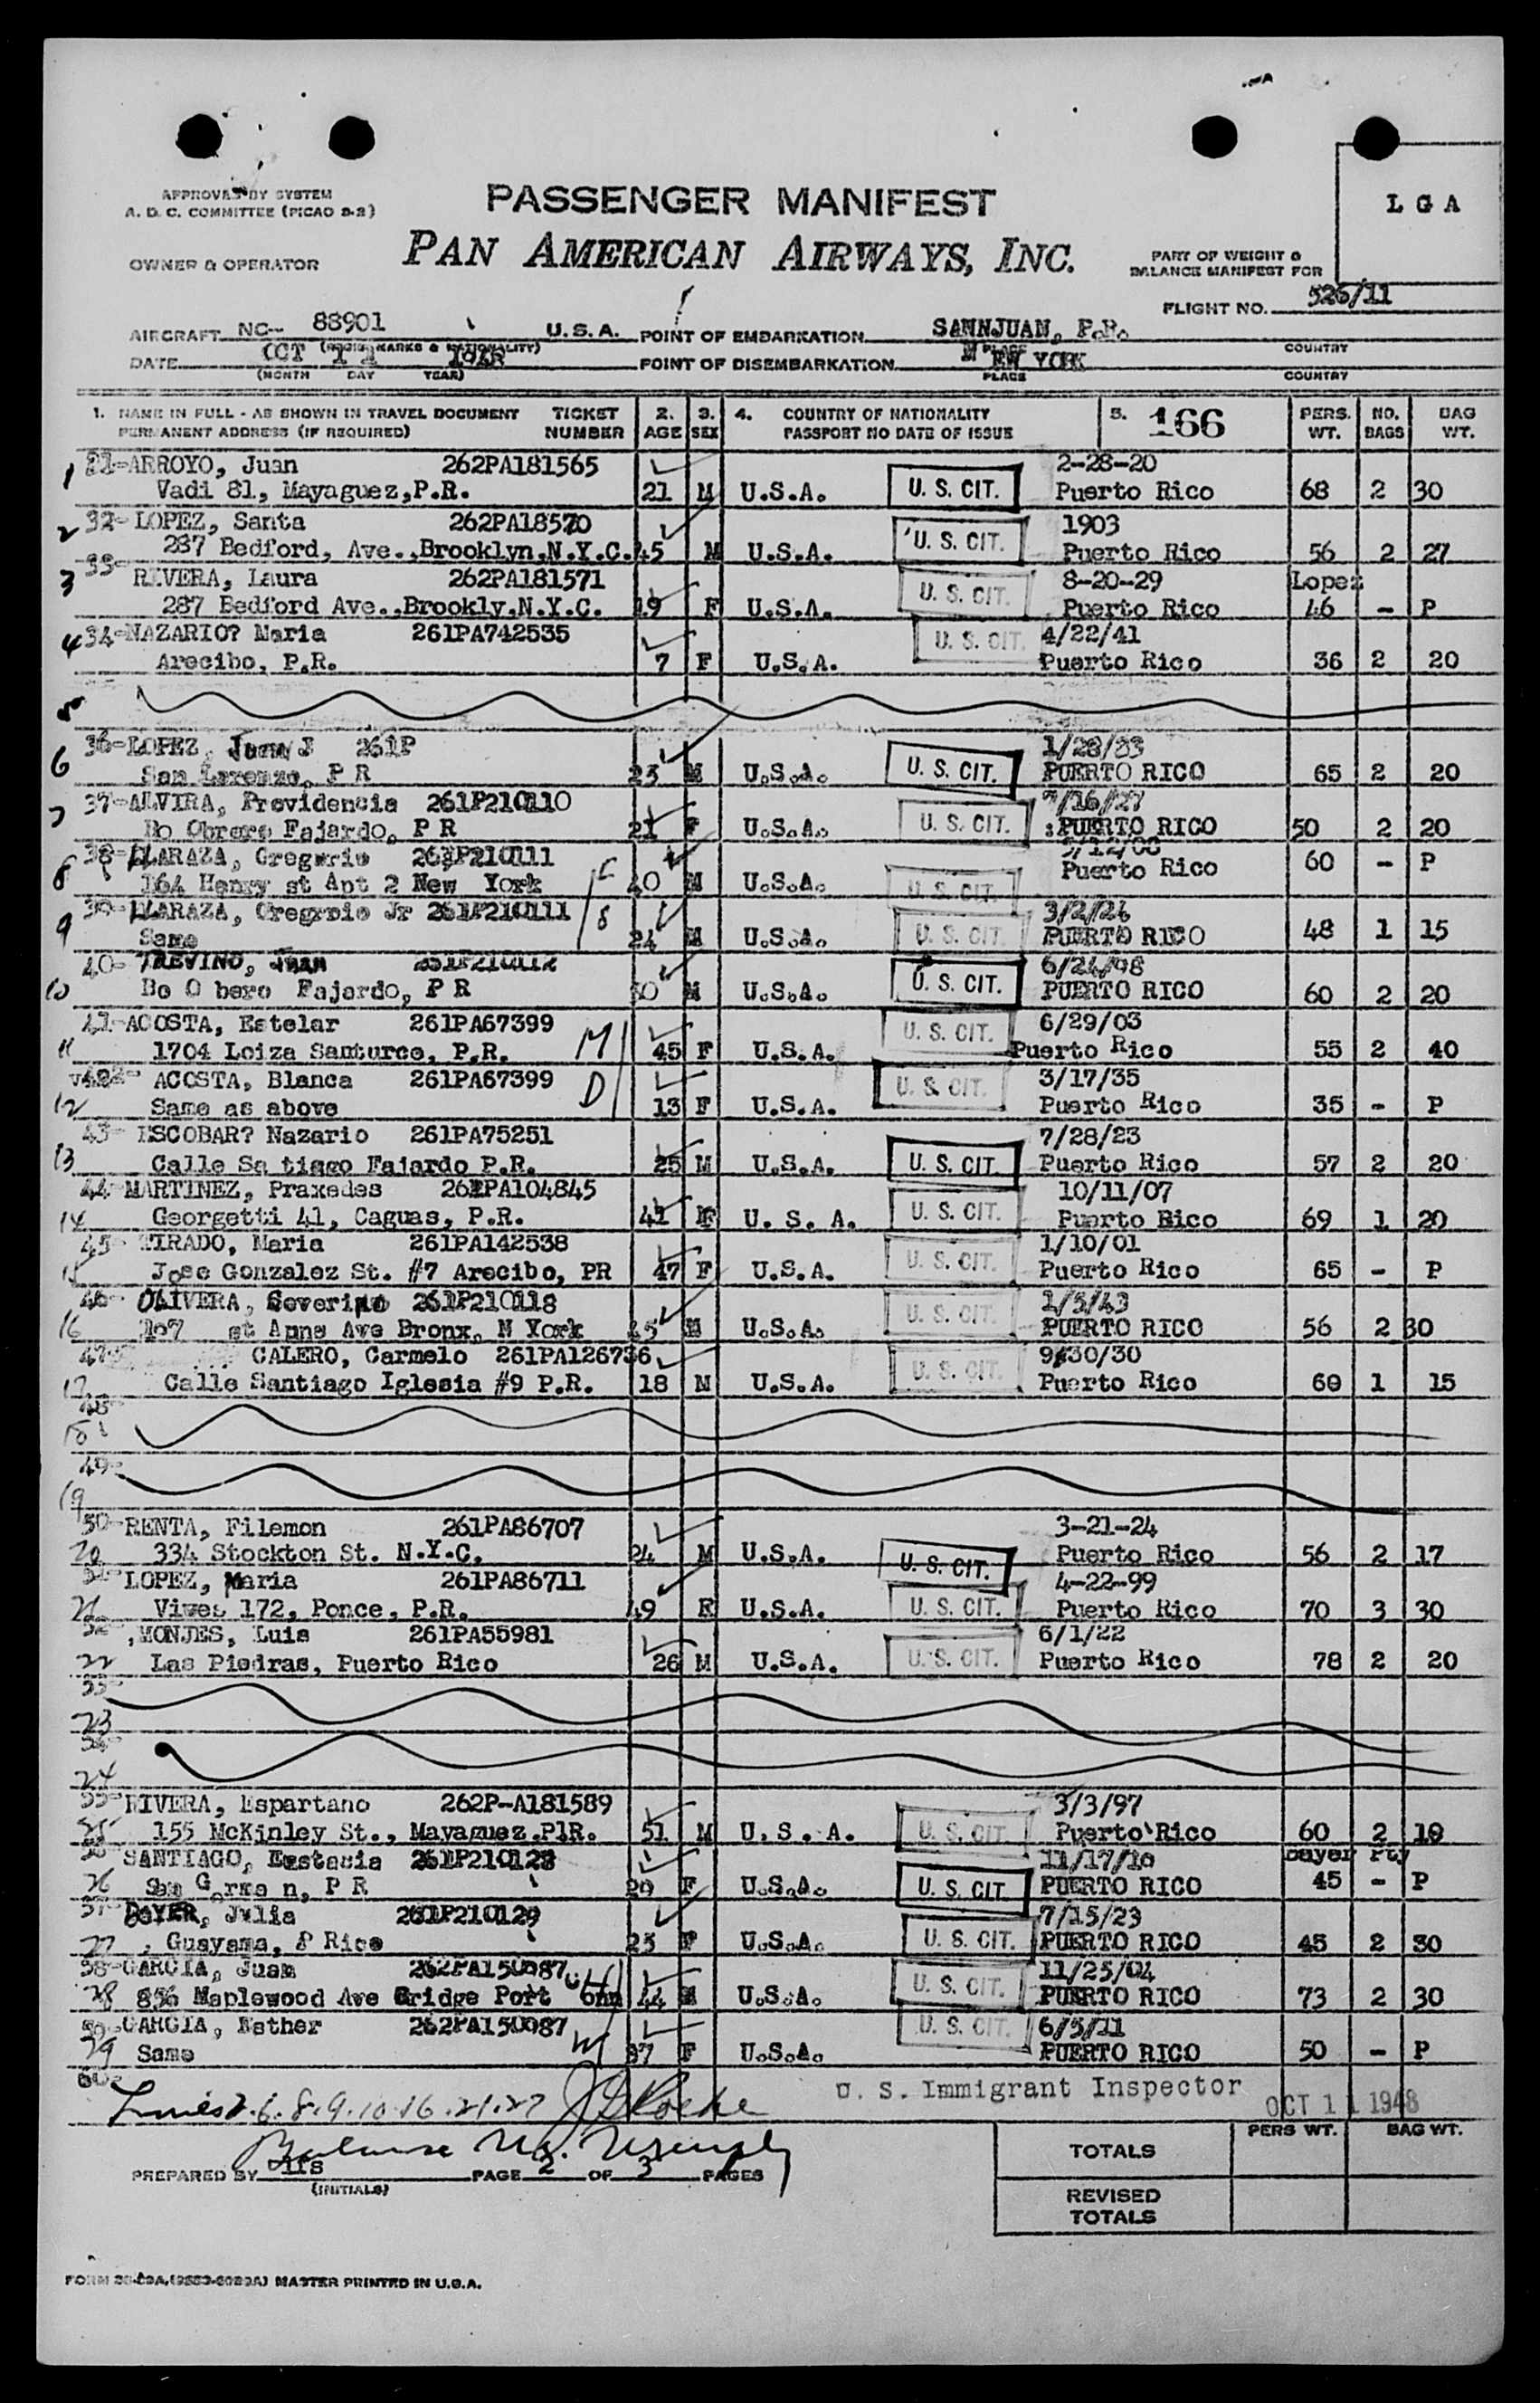 APPROVED BY SYSTEM
A. D. C. COMMITTEE (PICAO 2-2)
PASSENGER MANIFEST
L G A
OWNER & OPERATOR
PAN AMERICAN AIRWAYS, INC.
PART OF WEIGHT &
BALANCE MANIFEST FOR
FLIGHT NO. 526/11
AIRCRAFT NC-- 88901 U. S. A. POINT OF EMBARKATION SANNJUAN, P.R.
(REGIS. MARKS & NATIONALITY) PLACE COUNTRY
DATE OCT 11 1948 POINT OF DISEMBARKATION NEW YORK
(MONTH DAY YEAR) PLACE COUNTRY
1. NAME IN FULL - AS SHOWN IN TRAVEL DOCUMENT TICKET 2. 3. 4. COUNTRY OF NATIONALITY 5. 166 PERS. NO. BAG
PERMANENT ADDRESS (IF REQUIRED) NUMBER AGE SEX PASSPORT NO DATE OF ISSUE WT. BAGS WT.
1 ARROYO, Juan 262PA181565 2-28-20
Vadi 81, Mayaguez,P.R. 21 M U.S.A. U. S. CIT. Puerto Rico 68 2 30
2 32- LOPEZ, Santa 262PA18570 1903
287 Bedford, Ave.,Brooklyn,N.Y.C. 45 M U.S.A. U. S. CIT. Puerto Rico 56 2 27
3 33- RIVERA, Laura 262PA181571 8-20-29 Lopez
287 Bedford Ave.,Brookly,N.Y.C. 19 F U.S.A. U. S. CIT. Puerto Rico 46 - P
4 34- NAZARIO? Maria 261PA742535 4/22/41
Arecibo, P.R. 7 F U.S.A. U. S. CIT. Puerto Rico 36 2 20
5
6 36- LOPEZ, Juan J 261P
San Lorenzo, P R 23 M U.S.A. U. S. CIT. PUERTO RICO 65 2 20
7 37- ALVIRA, Providencia 261P210110
Bo Obrero Fajardo, P R 21 F U.S.A. U. S. CIT. PUERTO RICO 50 2 20
8 38- LLARAZA, Gregorio 261P210111
164 Henry st Apt 2 New York F 40 M U.S.A. U. S. CIT. Puerto Rico 60 - P
9 LLARAZA, Gregorio Jr 261P210111 3/2/24
Same S 24 M U.S.A. U. S. CIT. PUERTO RICO 48 1 15
10 40- TREVINO, Juan 261P210112 6/24/98
Bo O bero Fajardo, P R 50 M U.S.A. U. S. CIT. PUERTO RICO 60 2 20
11 41- ACOSTA, Estelar 261PA67399 6/29/03
1704 Loiza Santurce, P.R. M 45 F U.S.A. U. S. CIT. Puerto Rico 55 2 40
12 42- ACOSTA, Blanca 261PA67399 3/17/35
Same as above D 13 F U.S.A. U. S. CIT. Puerto Rico 35 - P
13 43- ESCOBAR? Nazario 261PA75251 7/28/23
Calle Sa tiago Fajardo P.R. 25 M U.S.A. U. S. CIT. Puerto Rico 57 2 20
14 44- MARTINEZ, Praxedes 261PA104845 10/11/07
Georgetti 41, Caguas, P.R. 41 F U. S. A. U. S. CIT. Puerto Rico 69 1 20
15 45- TIRADO, Maria 261PA142538 1/10/01
Jose Gonzalez St. #7 Arecibo, PR 47 F U.S.A. U. S. CIT. Puerto Rico 65 - P
16 46- OLIVERA, Severino 261P210118
107 st Anns Ave Bronx, N York M U.S.A. U. S. CIT. PUERTO RICO 56 2 30
17 47- CALERO, Carmelo 261PA126736 9/30/30
Calle Santiago Iglesia #9 P.R. 18 M U.S.A. U. S. CIT. Puerto Rico 60 1 15
18 48-
19 49-
50- RENTA, Filemon 261PA86707 3-21-24
20 334 Stockton St. N.Y.C. 24 M U.S.A. U. S. CIT. Puerto Rico 56 2 17
LOPEZ, Maria 261PA86711 4-22-99
21 Vives 172, Ponce, P.R. 49 F U.S.A. U. S. CIT. Puerto Rico 70 3 30
52- MONJES, Luis 261PA55981 6/1/22
22 Las Piedras, Puerto Rico 26 M U.S.A. U. S. CIT. Puerto Rico 78 2 20
53-
23
54-
24
55- RIVERA, Espartano 262P-A181589 3/3/97
25 155 McKinley St., Mayaguez,P.R. 51 M U. S. A. U. S. CIT. Puerto Rico 60 2 18
SANTIAGO, Eustacia 261P210128 Dayer Pty
26 San German, P R F U.S.A. U. S. CIT PUERTO RICO 45 - P
57- DAYER, Julia 261P210129 7/15/23
27 Guayama, P Rico 25 F U.S.A. U. S. CIT. PUERTO RICO 45 2 30
58- GARCIA, Juan 262PA150087 H 11/25/04
28 856 Maplewood Ave Bridge Port Conn 44 M U.S.A. U. S. CIT. PUERTO RICO 73 2 30
GARCIA, Esther 262PA150087 6/5/11
29 Same W 37 F U.S.A. U. S. CIT. PUERTO RICO 50 - P
60-
Lines 2.6.8.9.10.16.21.27 U. S. Immigrant Inspector OCT 11 1948
Balance
TOTALS PERS WT. BAG WT.
PREPARED BY PAGE 2 OF 3 PAGES
(INITIALS)
REVISED
TOTALS
MASTER PRINTED IN U.S.A.